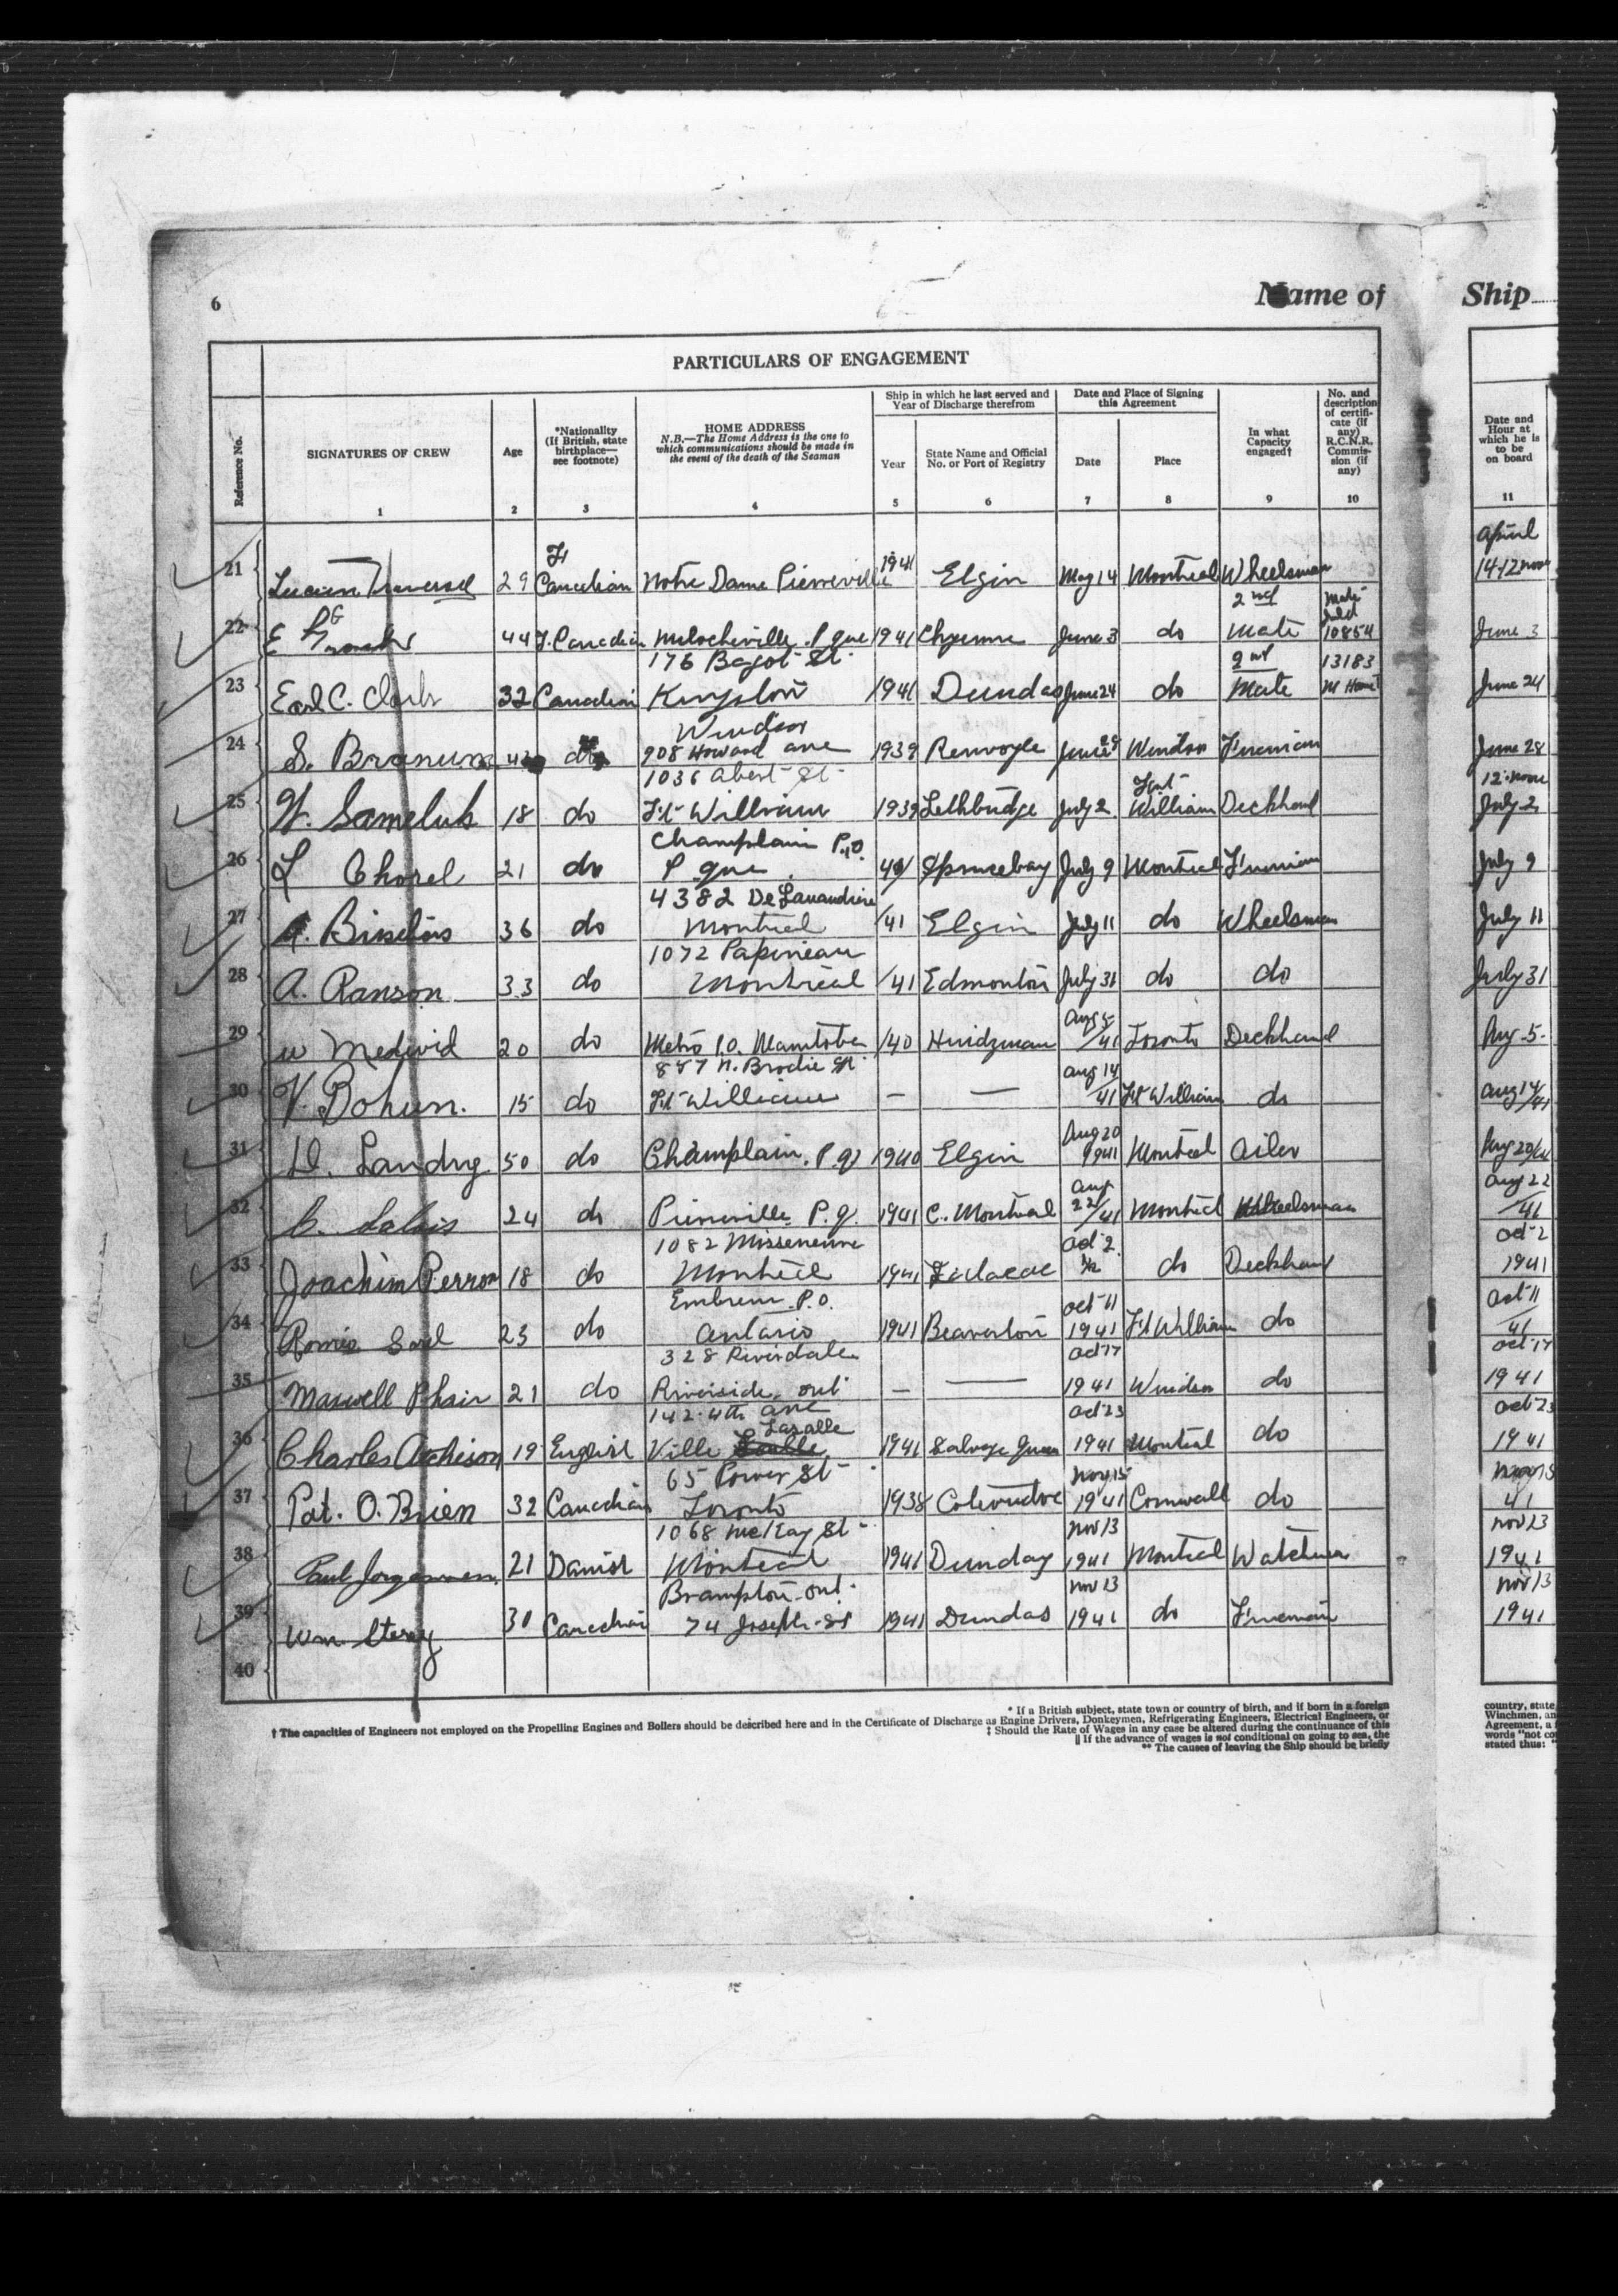 6
Name of Ship
PARTICULARS OF ENGAGEMENT
Reference No.
SIGNATURES OF CREW
1
Age
2
*Nationality
(If British, state
birthplace—
see footnote)
3
HOME ADDRESS
N.B.—The Home Address is the one to
which communications should be made in
the event of the death of the Seaman
4
Ship in which he last served and
Year of Discharge therefrom
Year
5
State Name and Official
No. or Port of Registry
6
Date and Place of Signing
this Agreement
Date
7
Place
8
In what
Capacity
engaged†
9
No. and
description
of certifi-
cate (if
any)
R.C.N.R.
Commis-
sion (if
any)
10
Date and
Hour at
which he is
to be
on board
11
21 Lucien 29 Fr Canadian Notre Dame Pierreville 1941 Elgin May 14 Montreal Wheelsman April 14-12 noon
22 E 44 F. Canadian Melocheville P que 1941 June 3 do 2nd Mate Mate 10854 June 3
176 Bagot St
23 Earl C. Clark 32 Canadian Kingston 1941 Dundas June 24 do 2nd Mate 13183 June 24
Windsor
24 S. Branum 908 Howard ave 1939 Renvoyle June 28 Windsor Fireman June 28
1036 Abert St 12 noon
25 W. Sameluk 18 do Ft William 1939 Lethbridge July 2 Fort William Deckhand July 2
Champlain P.O.
26 L Chorel 21 do P que Sprucebay July 9 Montreal Fireman July 9
4382 De Lanaudiere
27 36 do Montreal /41 Elgin July 11 do Wheelsman July 11
1072 Papineau
28 A. Ranson 33 do Montreal /41 Edmonton July 31 do do July 31
29 W Medwid 20 do P.O. Manitoba /40 Aug 5/41 Toronto Deckhand Aug-5-
N. Brodie St
30 V. Bohun. 15 do Ft William — — Aug 14/41 Ft William do Aug 14/41
31 D. Landry 50 do Champlain. P.Q 1940 Elgin Aug 20 1941 Montreal Oiler Aug 20/41
32 24 do Pierreville P.Q. 1941 C. Montreal Aug 22/41 Montreal Wheelsman Aug 22/41
1082
33 Joachim Perron 18 do Montreal 1941 Oct 2 do Deckhand Oct 2 1941
Embrun P.O.
34 23 do Ontario 1941 Beaverton Oct 11 1941 Ft William do Oct 11/41
328 Riverdale
35 Maxwell Phair 21 do Riverside Ont — — Oct 17 1941 Windsor do Oct 17 1941
142-4th Ave
36 Charles Aichison 19 English Ville Lasalle 1941 Salvage Queen Oct 23 1941 Montreal do Oct 23 1941
65 Power St
37 Pat. O. Brien 32 Canadian Toronto 1938 Nov 15 1941 Cornwall do 41
1068 McKay St
38 Paul 21 Danish Montreal 1941 Dunday Nov 13 1941 Montreal Watchman Nov 13 1941
Brampton-Ont.
39 Wm. 30 Canadian 74 Joseph-St 1941 Dundas Nov 13 1941 do Fireman Nov 13 1941
40
* If a British subject, state town or country of birth, and if born in a foreign
† The capacities of Engineers not employed on the Propelling Engines and Boilers should be described here and in the Certificate of Discharge as Engine Drivers, Donkeymen, Refrigerating Engineers, Electrical Engineers, or
‡ Should the Rate of Wages in any case be altered during the continuance of this
|| If the advance of wages is not conditional on going to sea, the
** The causes of leaving the Ship should be briefly
country, state
Winchmen, an
Agreement, a
words "not co
stated thus: "